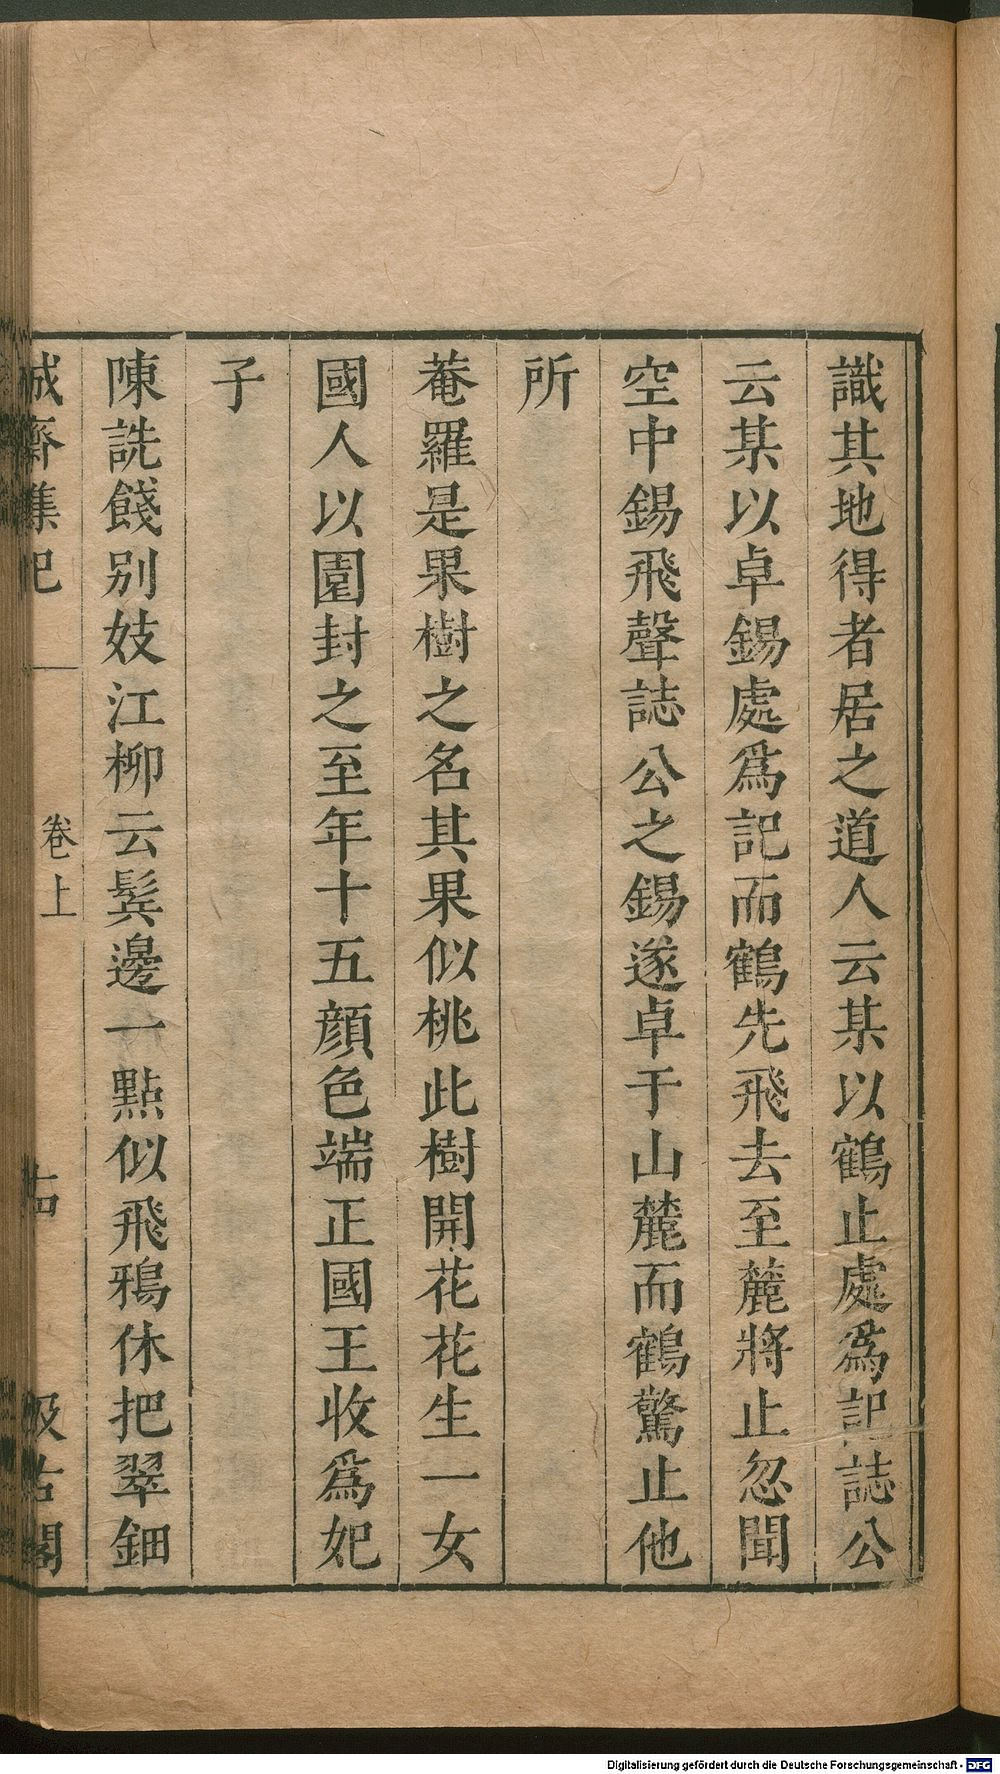 識其地得者居之道人云某以鶴止處爲記誌公
云某以卓錫處爲記而鶴先飛去至麓將止忽聞
空中錫飛聲誌公之錫遂卓于山麓而鶴驚止他
所
菴羅是果樹之名其果似桃此樹開花花生一女
國人以園封之至年十五顔色端正國王收爲妃
子
陳詵餞别妓江柳云鬂邊一點似飛鴉休把翠鈿
誠齋雜記
卷上
十四
汲古閣
Digitalisierung gefördert durch die Deutsche Forschungsgemeinschaft - DFG